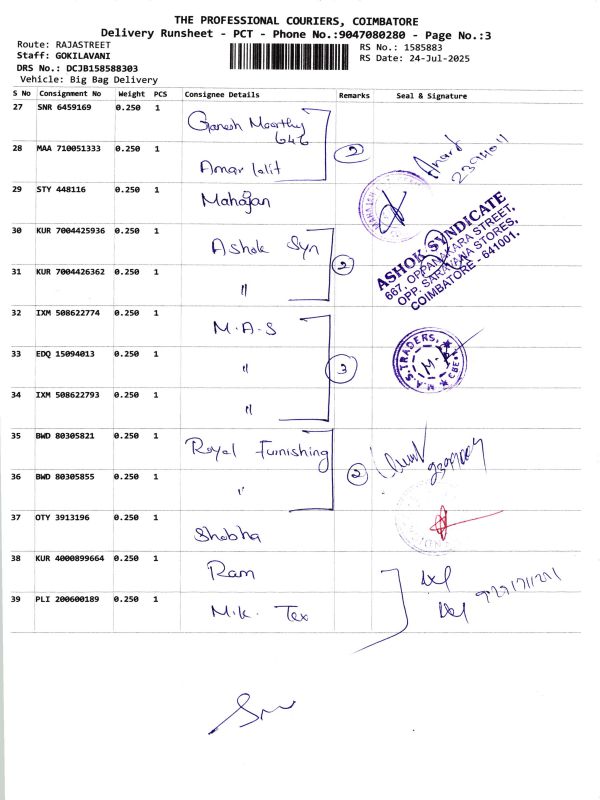 THE PROFESSIONAL COURIERS, COIMBATORE
Delivery Runsheet - PCT - Phone No.:9047080280 - Page No.:3
Route: RAJASTREET
Staff: GOKILAVANI
DRS No.: DCJB158588303
Vehicle: Big Bag Delivery
RS No.: 1585883
RS Date: 24-Jul-2025
S No Consignment No Weight PCS Consignee Details Remarks Seal & Signature
27 SNR 6459169 0.250 1 Ganesh Moorthy
646
28 MAA 710051333 0.250 1 Amar lalit
2
29 STY 448116 0.250 1 Mahajan
30 KUR 7004425936 0.250 1 Ashok Syn
2
31 KUR 7004426362 0.250 1 "
ASHOK SYNDICATE
667, OPPANAKARA STREET,
OPP. SARAVANA STORES,
COIMBATORE - 641001.
32 IXM 508622774 0.250 1 M.A.S
33 EDQ 15094013 0.250 1 "
3
M.A.S. TRADERS, CBE
34 IXM 508622793 0.250 1 "
35 BWD 80305821 0.250 1 Royal Furnishing
2
36 BWD 80305855 0.250 1 "
37 OTY 3913196 0.250 1 Shobha
38 KUR 4000899664 0.250 1 Ram
39 PLI 200600189 0.250 1 M.K. Tex